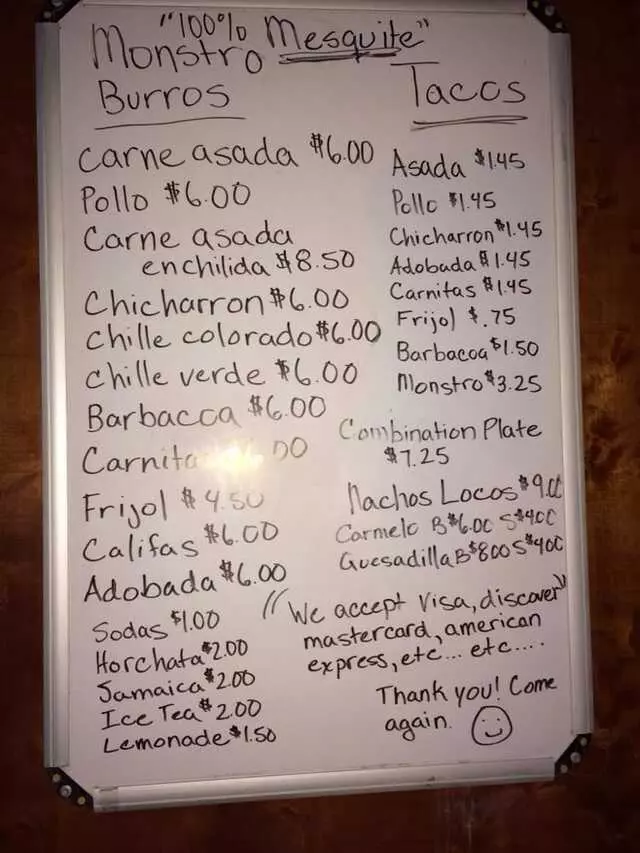 "100% Mesquite"
Monstro
Burros
Carne asada $6.00
Pollo $6.00
Carne asada
enchilida $8.50
Chicharron $6.00
Chille colorado $6.00
Chille verde $6.00
Barbacca $6.00
Carnita 00
Frijol $4.50
Califas $6.00
Adobada $6.00
Sodas $1.00
Horchata $2.00
Jamaica $2.00
Ice Tea $2.00
Lemonade $1.50
Tacos
Asada $1.45
Pollo $1.45
Chicharron $1.45
Adobada $1.45
Carnitas $1.45
Frijol $.75
Barbacoa $1.50
Monstro $3.25
Combination Plate
$7.25
Nachos Locos $9.00
Carmelo B $6.00 S $400
Quesadilla B $800 S $400
"We accept Visa, discover"
mastercard, american
express, etc... etc....
Thank you! Come
again.